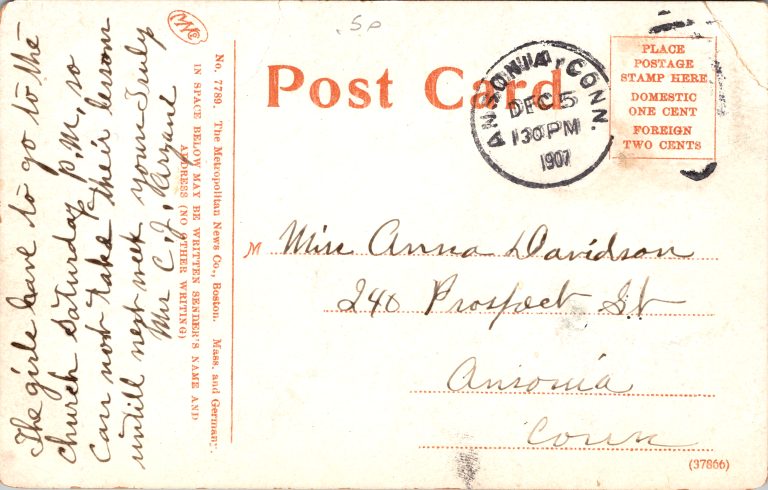 .50
Post Card
PLACE
POSTAGE
STAMP HERE
DOMESTIC
ONE CENT
FOREIGN
TWO CENTS
ANSONIA, CONN.
DEC 5
130 PM
1907
M Miss Anna Davidson
240 Prospect St
Ansonia
Conn
(37866)
No. 7789. The Metropolitan News Co., Boston. Mass. and Germany.
IN SPACE BELOW MAY BE WRITTEN SENDER'S NAME AND
ADDRESS (NO OTHER WRITING)
The girls have to go to the
church Saturday P.M, so
can not take their lesson
untill next week yours Truly
Mrs C. J.